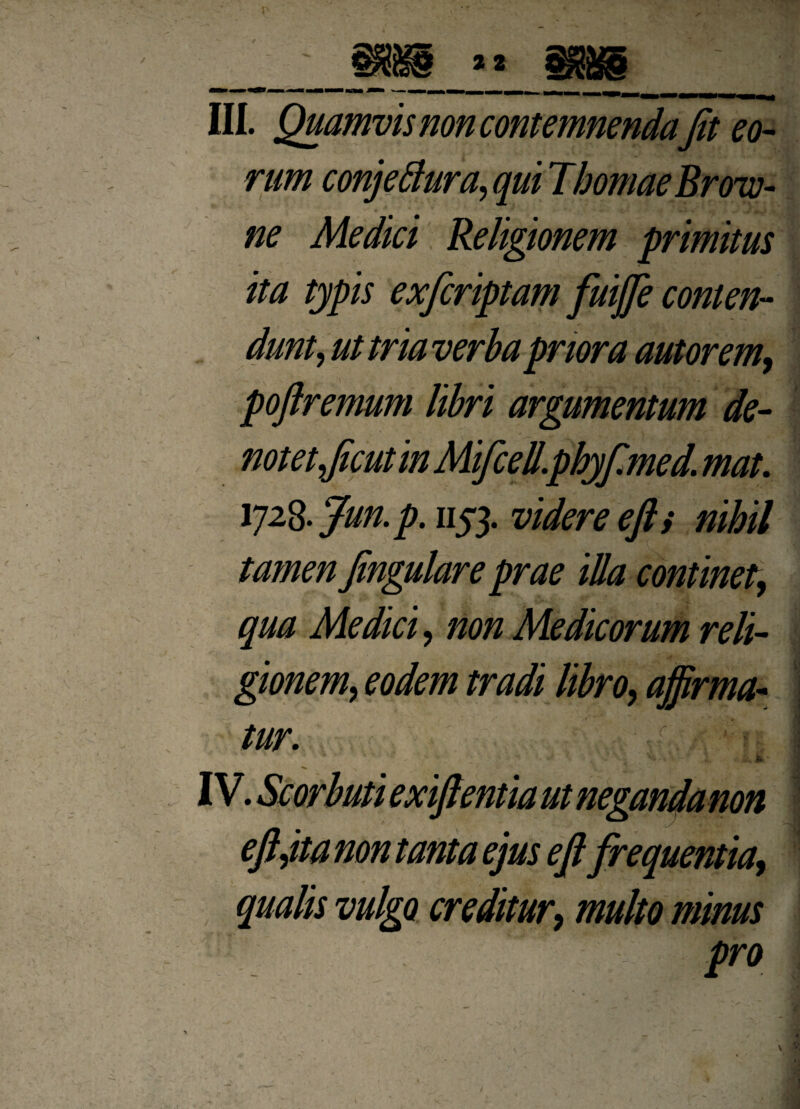 22
III. Quamvis non contemnenda ſit eo-
rum conjectura, qui Thomae Brow-
ne Medici Religionem primitus
ita typis exſcriptam fuiſſe conten-
dunt, ut tria verba priora autorem,
poſtremum libri argumentum de-
notet, ſicut in Miſcell. phyſ. med. mat.
1728. Jun. p. 1153. videre eſt; nihil
tamen ſingulare prae illa continet,
qua Medici, non Medicorum reli-
gionem, eodem tradi libro, affirma-
tur.
IV. Scorbuti exiſtentia ut neganda non
eſt, ita non tanta ejus eſt frequentia,
qualis vulgo creditur, multo minus
pro